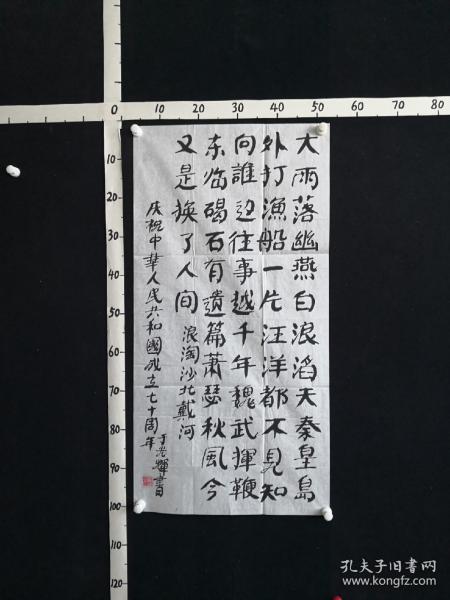 0 10 20 30 40 50 60 70 80
大雨落幽燕白浪滔天秦皇島
外打漁船一片汪洋都不見知
向誰边往事越千年魏武揮鞭
东临碣石有遺篇萧瑟秋風今
又是换了人间
浪淘沙北戴河
庆祝中華人民共和國成立七十周年
于光輝書
10
20
30
40
50
60
70
80
90
100
110
120
孔夫子旧书网
www.kongfz.com